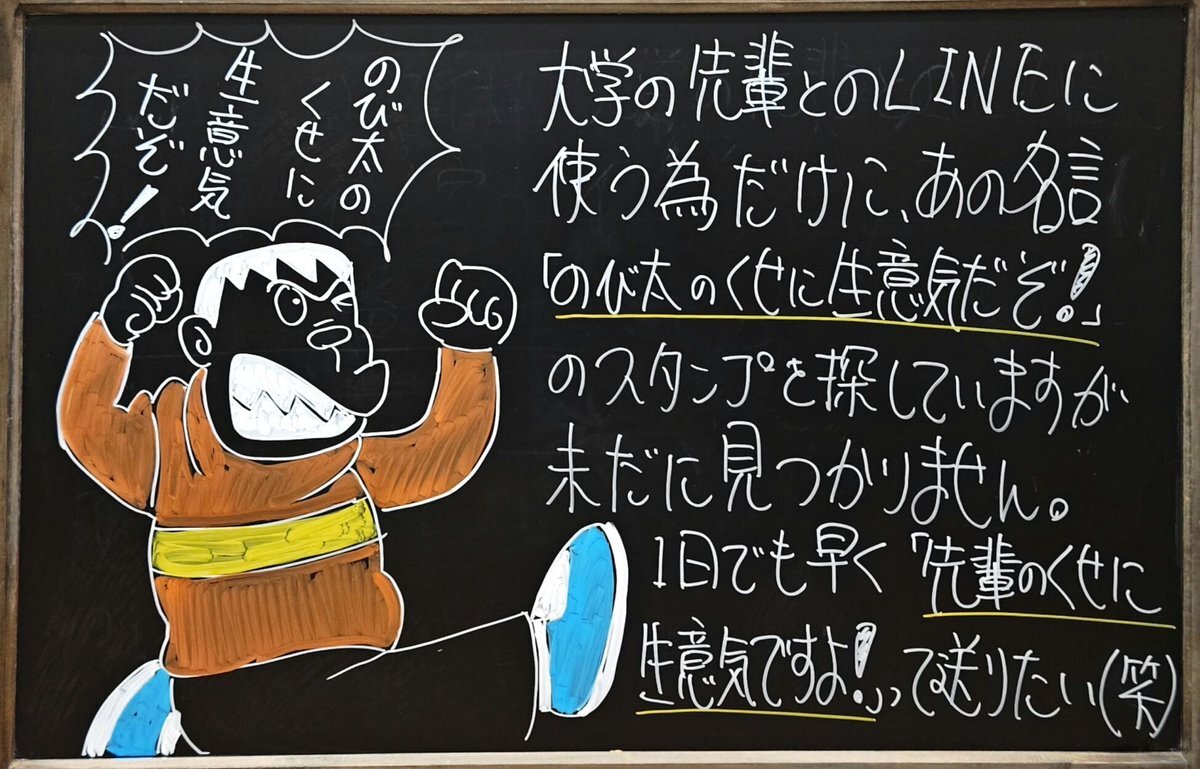 のび太の
くせに
生意気
だぞ!
大学の先輩とのLINEに
使う為だけに、あの名言
「のび太のくせに生意気だぞ!」
のスタンプを探していますが
未だに見つかりません。
1日でも早く「先輩のくせに
生意気ですよ!」って送りたい(笑)